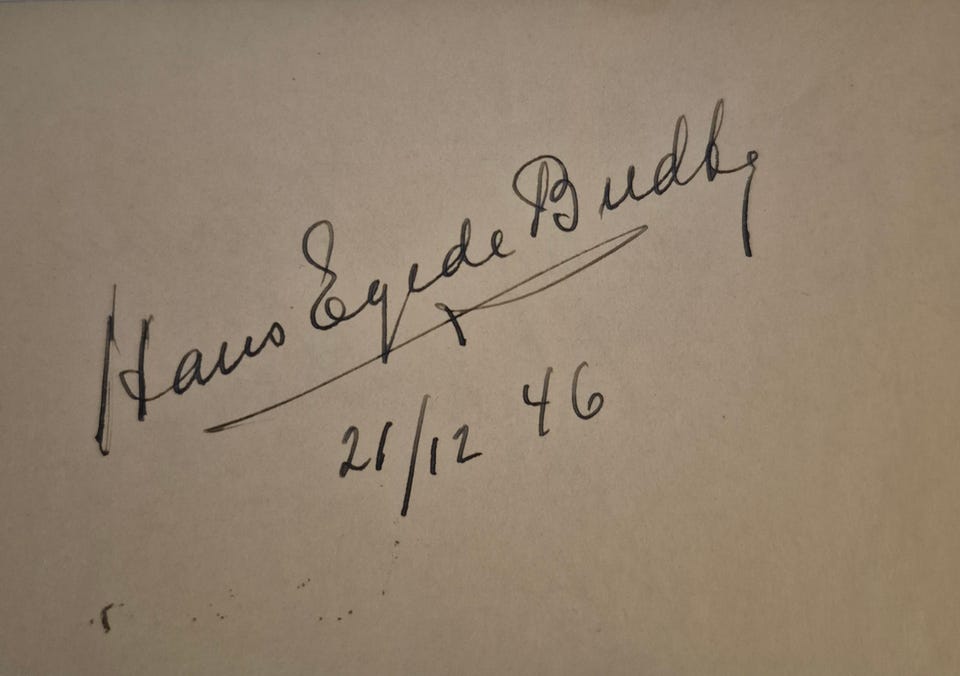 Hans Egede Budtz
21/12 46